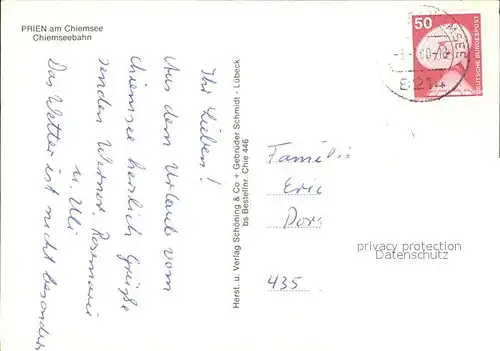 PRIEN am Chiemsee
Chiemseebahn
Ihr Lieben!
Aus dem Urlaub vom
Chiemsee herzlich Grüße
senden Werner, Rosemarie
u. Uli
Das Wetter ist nicht besonders
Herst. u. Verlag Schöning & Co + Gebrüder Schmidt - Lübeck
bs Bestellnr. Chie 446
50
DEUTSCHE BUNDESPOST
8214
Familie
Eric
Dorn
435
privacy protection
Datenschutz